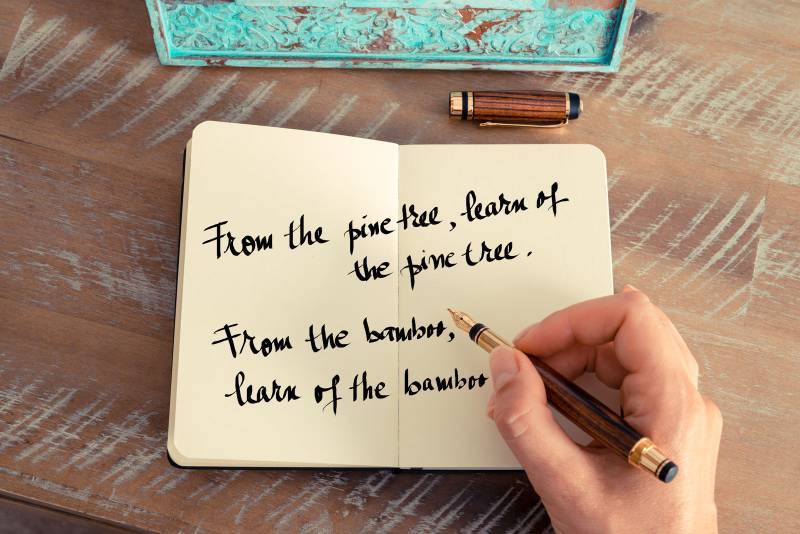 From the pine tree, learn of
the pine tree.
From the bamboo,
learn of the bamboo